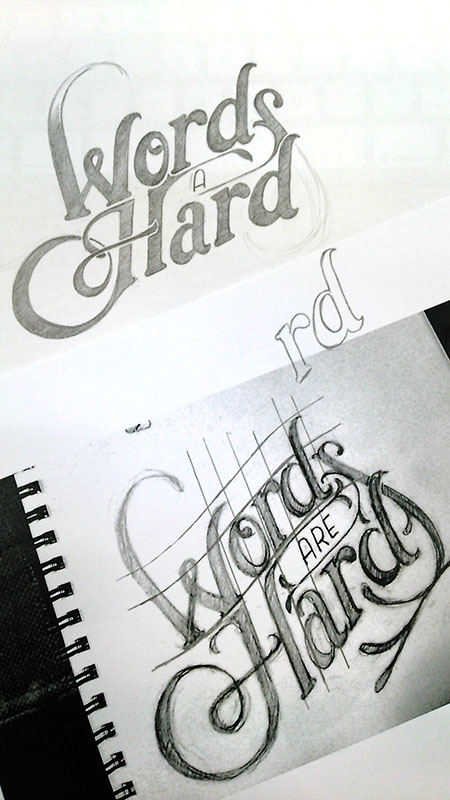 Words
A
Hard
rd
Words
ARE
Hard